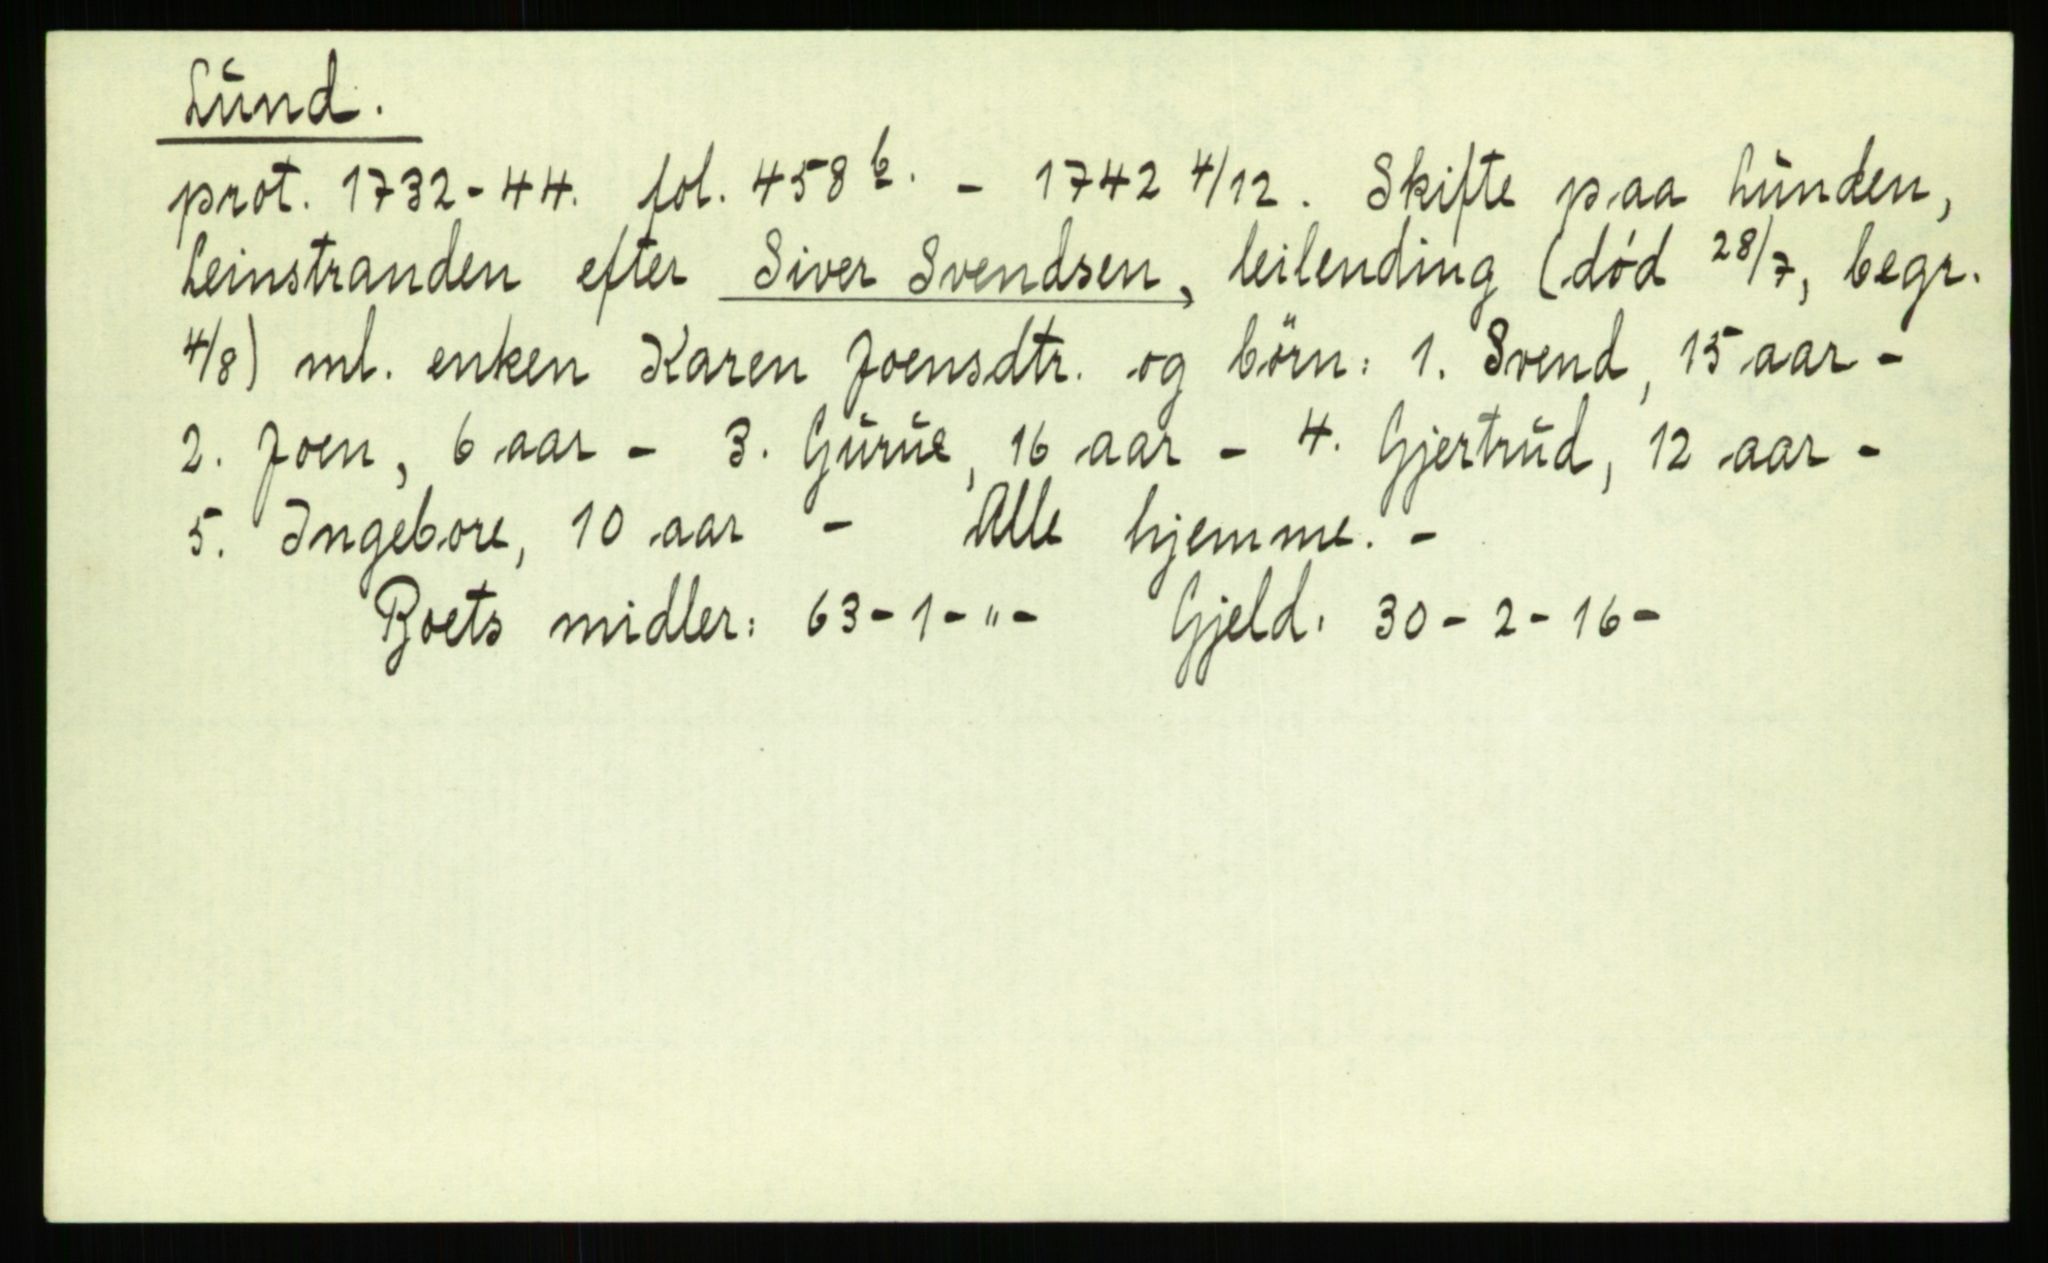 Lund.
prot. 1732-44. fol. 458 b. - 1742 4/12. Skifte paa Lunden,
Leinstranden efter Siver Svendsen, leilending (død 28/7, begr.
4/8) ml. enken Karen Joensdtr. og börn: 1. Svend, 15 aar -
2. Joen, 6 aar - 3. Gurue, 16 aar - 4. Gjertrud, 12 aar -
5. Ingebore, 10 aar - Alle hjemme. -
Boets midler: 63-1-"- Gjeld. 30-2-16-